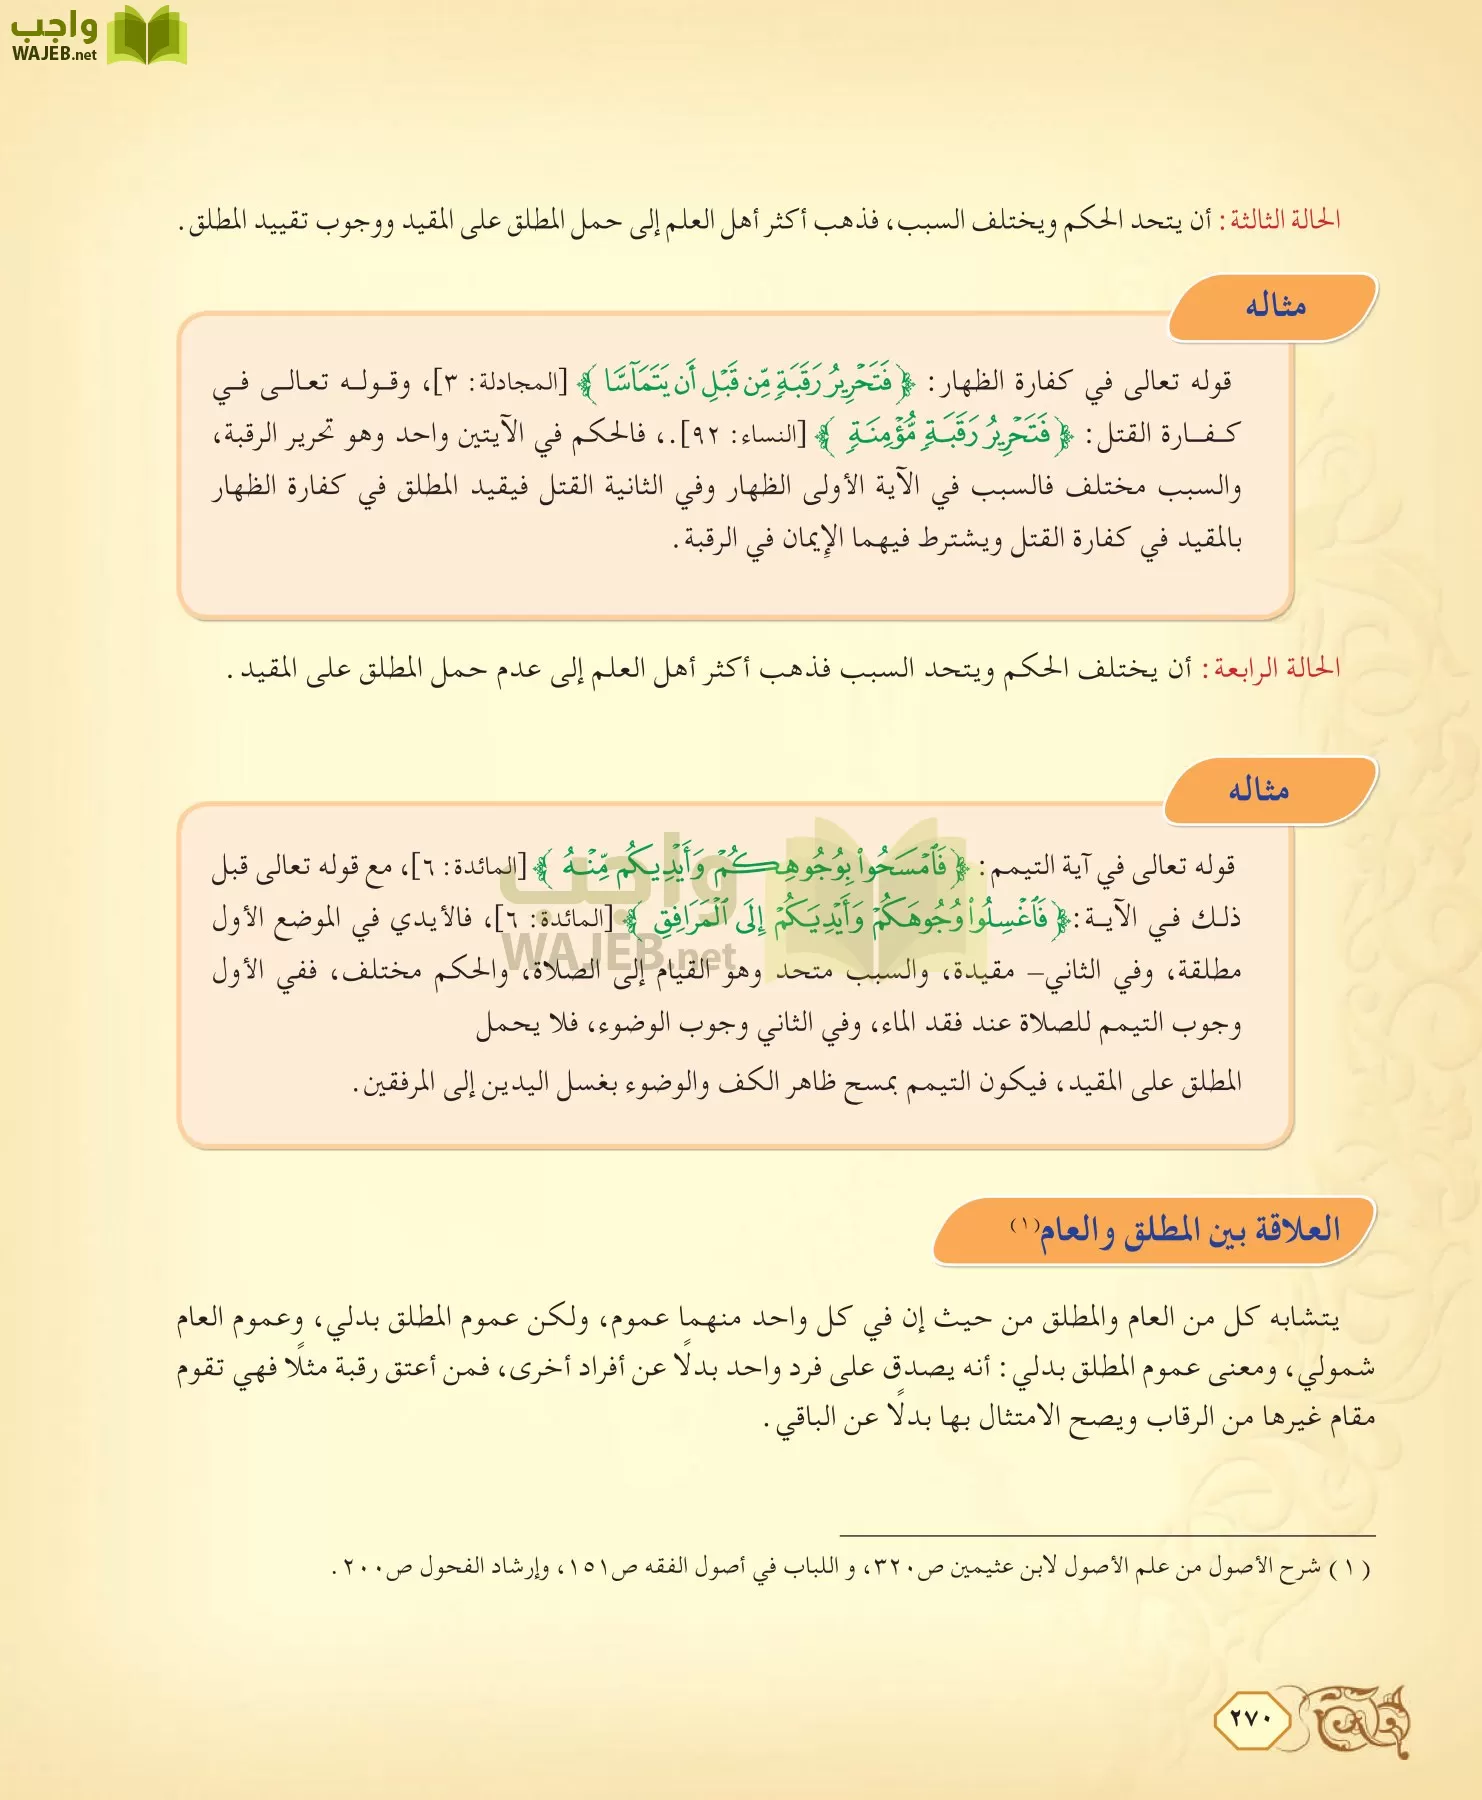 واجب
WAJEB.net
الحالة الثالثة: أن يتحد الحكم ويختلف السبب، فذهب أكثر أهل العلم إلى حمل المطلق على المقيد ووجوب تقييد المطلق.
مثاله
قوله تعالى في كفارة الظهار: ﴿فَتَحْرِيرُ رَقَبَةٍ مِّن قَبْلِ أَن يَتَمَآسَّا﴾ [المجادلة: ٣]، وقوله تعالى في
كفارة القتل: ﴿فَتَحْرِيرُ رَقَبَةٍ مُّؤْمِنَةٍ﴾ [النساء: ٩٢].، فالحكم في الآيتين واحد وهو تحرير الرقبة،
والسبب مختلف فالسبب في الآية الأولى الظهار وفي الثانية القتل فيقيد المطلق في كفارة الظهار
بالمقيد في كفارة القتل ويشترط فيهما الإيمان في الرقبة.
الحالة الرابعة: أن يختلف الحكم ويتحد السبب فذهب أكثر أهل العلم إلى عدم حمل المطلق على المقيد.
مثاله
قوله تعالى في آية التيمم: ﴿فَٱمْسَحُوا۟ بِوُجُوهِكُمْ وَأَيْدِيكُم مِّنْهُ﴾ [المائدة: ٦]، مع قوله تعالى قبل
ذلك في الآية: ﴿فَٱغْسِلُوا۟ وُجُوهَكُمْ وَأَيْدِيَكُمْ إِلَى ٱلْمَرَافِقِ﴾ [المائدة: ٦]، فالأيدي في الموضع الأول
مطلقة، وفي الثاني– مقيدة، والسبب متحد وهو القيام إلى الصلاة، والحكم مختلف، ففي الأول
وجوب التيمم للصلاة عند فقد الماء، وفي الثاني وجوب الوضوء، فلا يحمل
المطلق على المقيد، فيكون التيمم بمسح ظاهر الكف والوضوء بغسل اليدين إلى المرفقين.
واجب
WAJEB.net
العلاقة بين المطلق والعام(١)
يتشابه كل من العام والمطلق من حيث إن في كل واحد منهما عموم، ولكن عموم المطلق بدلي، وعموم العام
شمولي، ومعنى عموم المطلق بدلي: أنه يصدق على فرد واحد بدلًا عن أفراد أخرى، فمن أعتق رقبة مثلًا فهي تقوم
مقام غيرها من الرقاب ويصح الامتثال بها بدلًا عن الباقي.
(١) شرح الأصول من علم الأصول لابن عثيمين ص٣٢٠، و اللباب في أصول الفقه ص١٥١، وإرشاد الفحول ص٢٠٠.
٢٧٠